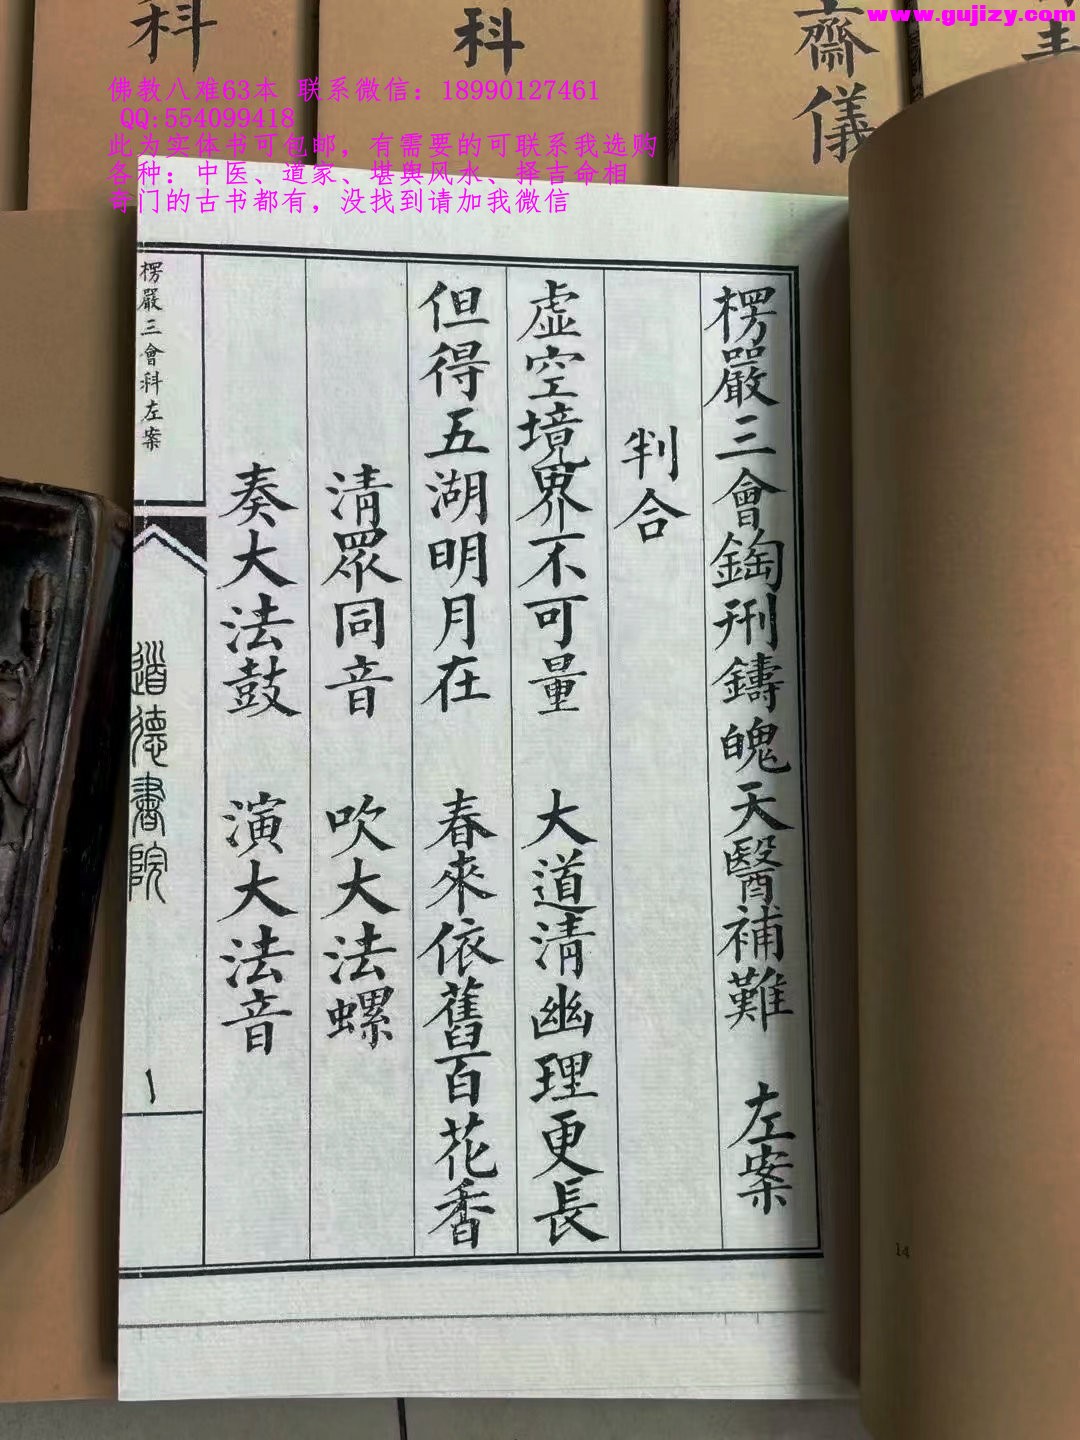 www.gujizy.com
科
科
齋儀
佛教八难63本 联系微信：18990127461
QQ:554099418
此为实体书可包邮，有需要的可联系我选购
各种：中医、道家、堪舆风水、择吉命相
奇门的古书都有，没找到请加我微信
楞嚴三會鋾刑鑄魄天醫補難 左案
判合
虛空境界不可量 大道清幽理更長
但得五湖明月在 春來依舊百花香
清眾同音 吹大法螺
奏大法鼓 演大法音
楞嚴三會科左案
道德書院
一
14